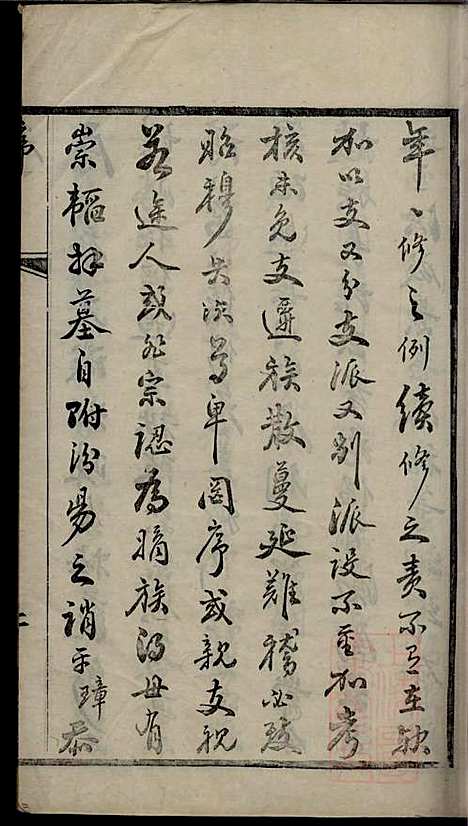 年〻修之例續修之責不有在歟
加以支又分支派又別派設不重加考
核未免支遷族散蔓延難稽必致
昭穆失次尊卑罔序或親支視
若途人或非宗認為嫡族得毋有
崇韜拜墓自附汾陽之誚乎璋忝
序
二